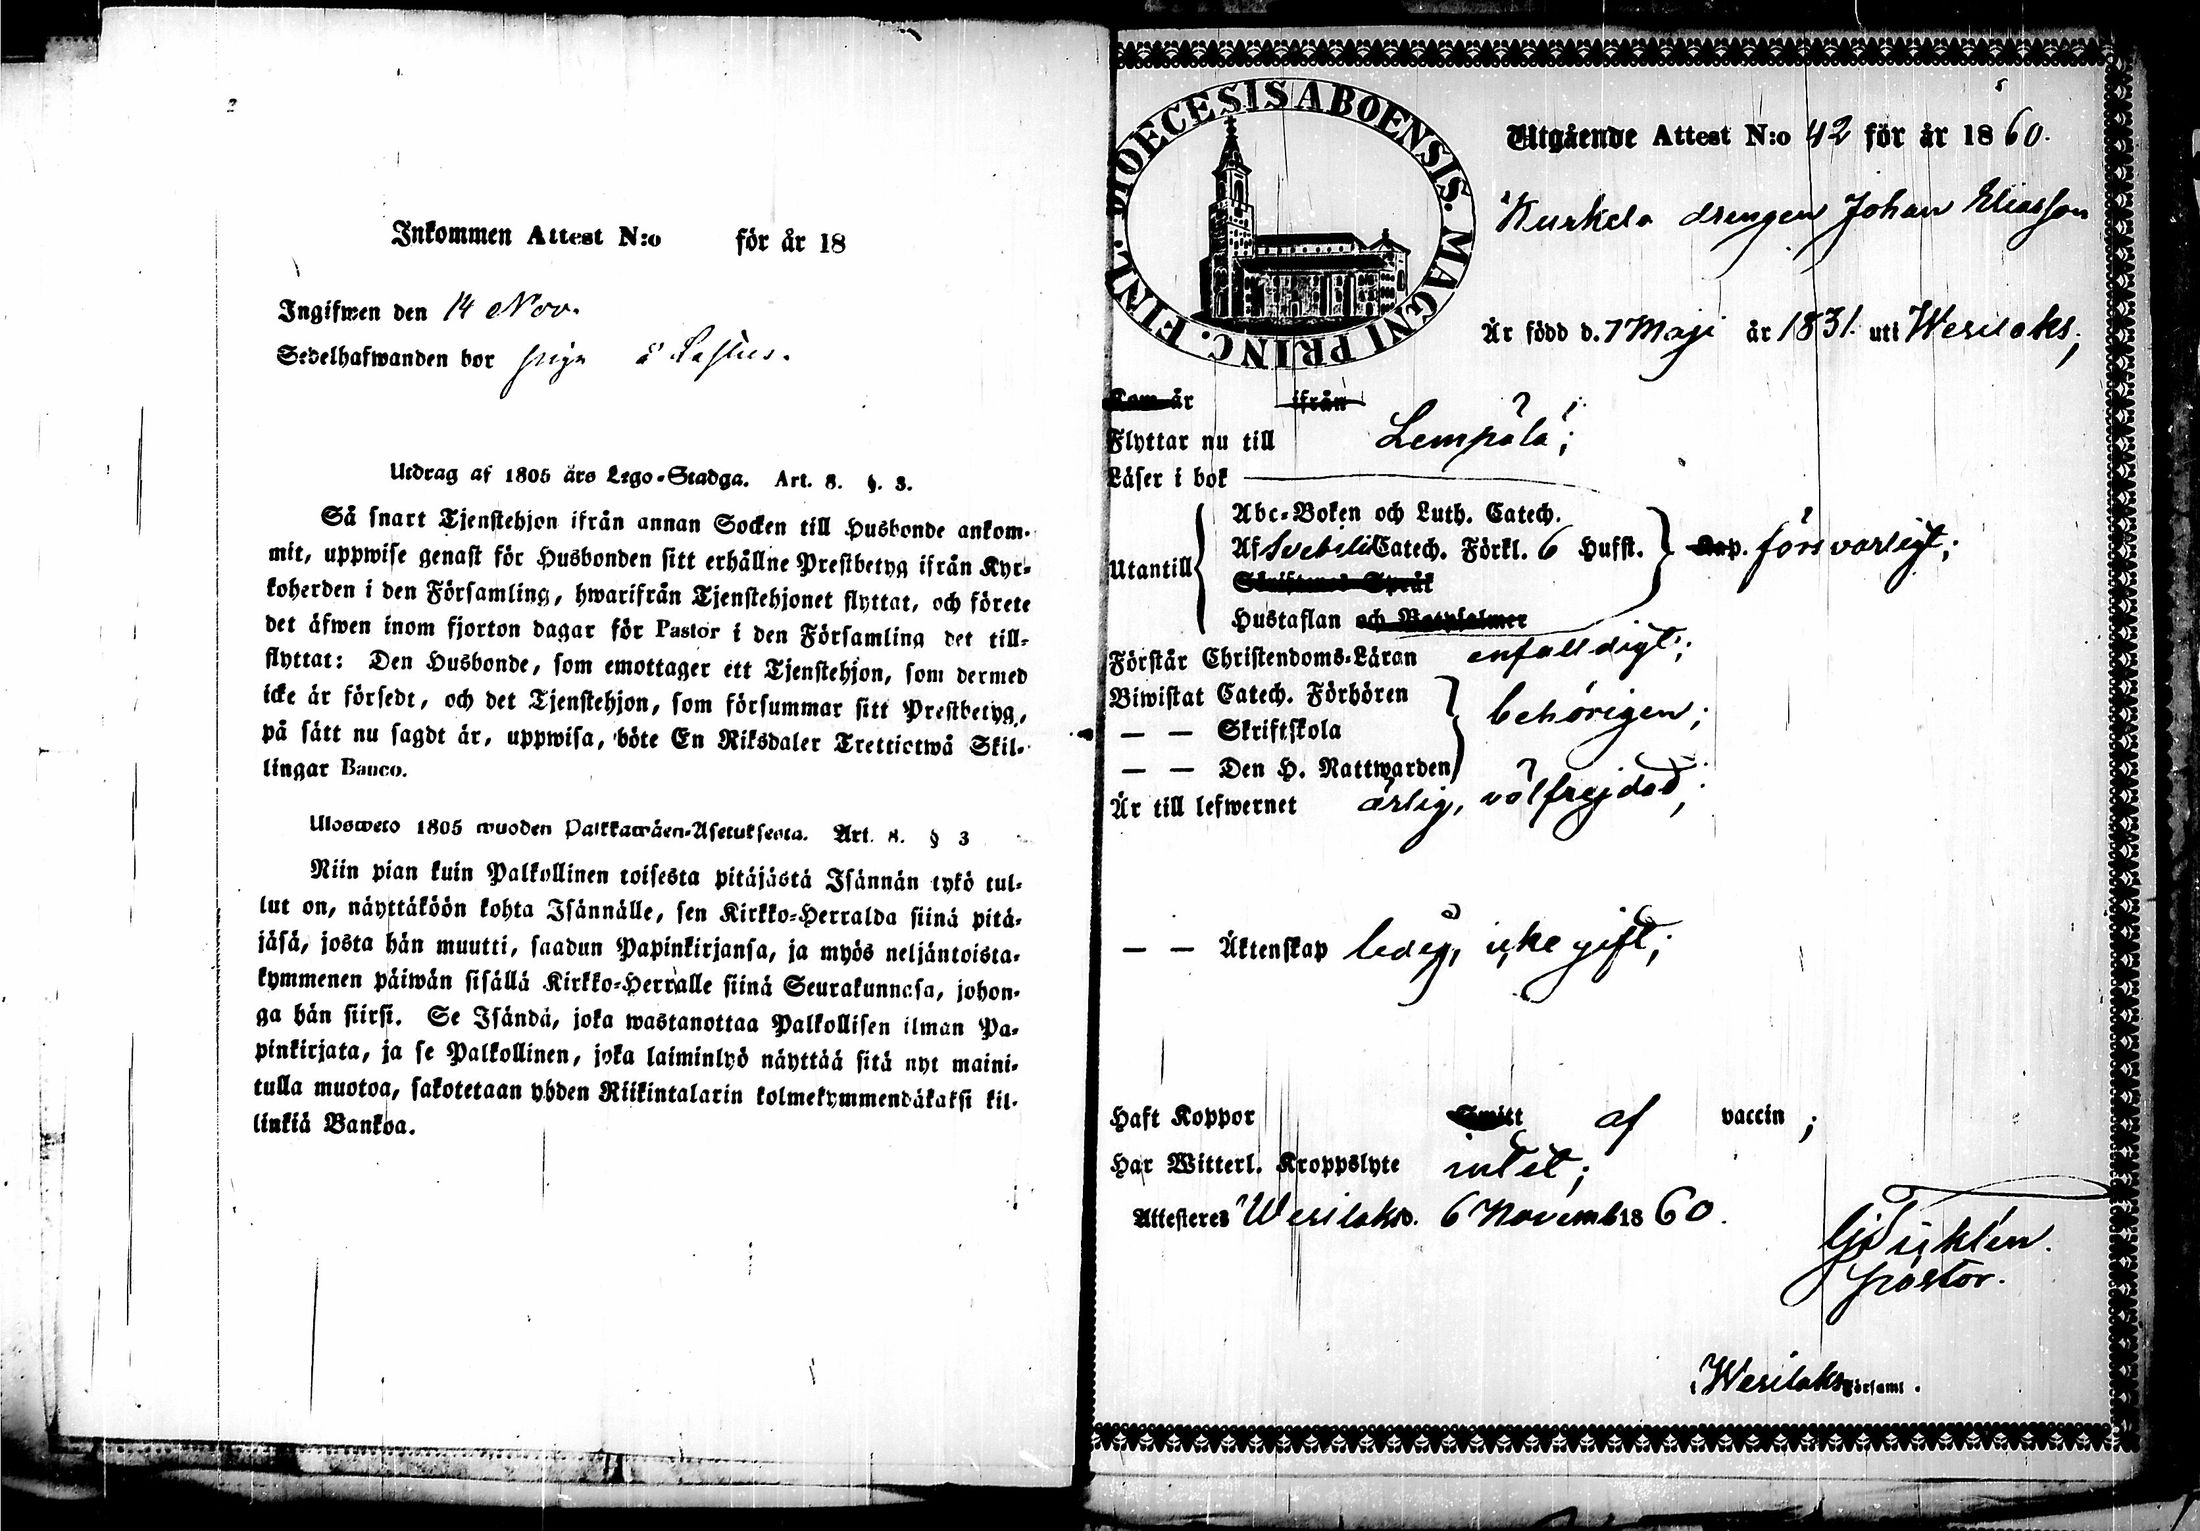 Inkommen Attest N:o för år 18
Ingifwen den 14 Nov.
Sedelhafwanden bor
Utdrag af 1805 års Lego-Stadga. Art. 8. §. 3.
Så snart Tjenstehjon ifrån annan Socken till Husbonde ankom-
mit, uppwise genast för Husbonden sitt erhållne Prestbetyg ifrån Kyr-
koherden i den Församling, hwarifrån Tjenstehjonet flyttat, och förete
det äfwen inom fjorton dagar för Pastor i den Församling det till-
flyttat: Den Husbonde, som emottager ett Tjenstehjon, som dermed
icke är försedt, och det Tjenstehjon, som försummar sitt Prestbetyg,
på sätt nu sagdt är, uppwisa, böte En Riksdaler Trettiotwå Skil-
lingar Banco.
Uloswето 1805 wuoden Palkkawäen-Asetuksesta. Art. 8. § 3
Niin pian kuin Palkollinen toisesta pitäjästä Isännän tykö tul-
lut on, näyttäköön kohta Isännälle, sen Kirkko-Herralda siinä pitä-
jäsä, josta hän muutti, saadun Papinkirjansa, ja myös neljäntoista-
kymmenen päiwän sisällä Kirkko-Herralle siinä Seurakunnasa, johon-
ga hän siirsi. Se Isändä, joka wastanottaa Palkollisen ilman Pa-
pinkirjata, ja se Palkollinen, joka laiminlyö näyttää sitä nyt maini-
tulla muotoa, sakotetaan yhden Riikintalarin kolmekymmendäkaksi kil-
linkiä Bankoa.
DIOECESIS ABOENSIS. MAGNI PRINC. FINL.
Utgående Attest N:o 42 för år 1860.
Kurkela drengen Johan Eliasson
Är född d. 7 Maji år 1831. uti Wesilaks;
Kom år ifrån
Flyttar nu till Lempälä;
Läser i bok
Abc-Boken och Luth. Catech.
Utantill Af Svebilii Catech. Förkl. 6 Hufst. Kap. försvarligt;
Skriftenes Språk
Hustaflan och Botpsalmer
Förstår Christendoms-Läran enfalldigt;
Biwistat Catech. Förhören
— — Skriftskola behörigen;
— — Den H. Nattwarden
Är till lefwernet ärlig, välfrejdad;
— — Äktenskap ledig, icke gift;
Haft Koppor Smitt af vaccin;
Har Witterl. Kroppslyte intet;
Attesteres Wesilaks d. 6 Novemb 1860.
Pastor.
i Wesilaks Församl.